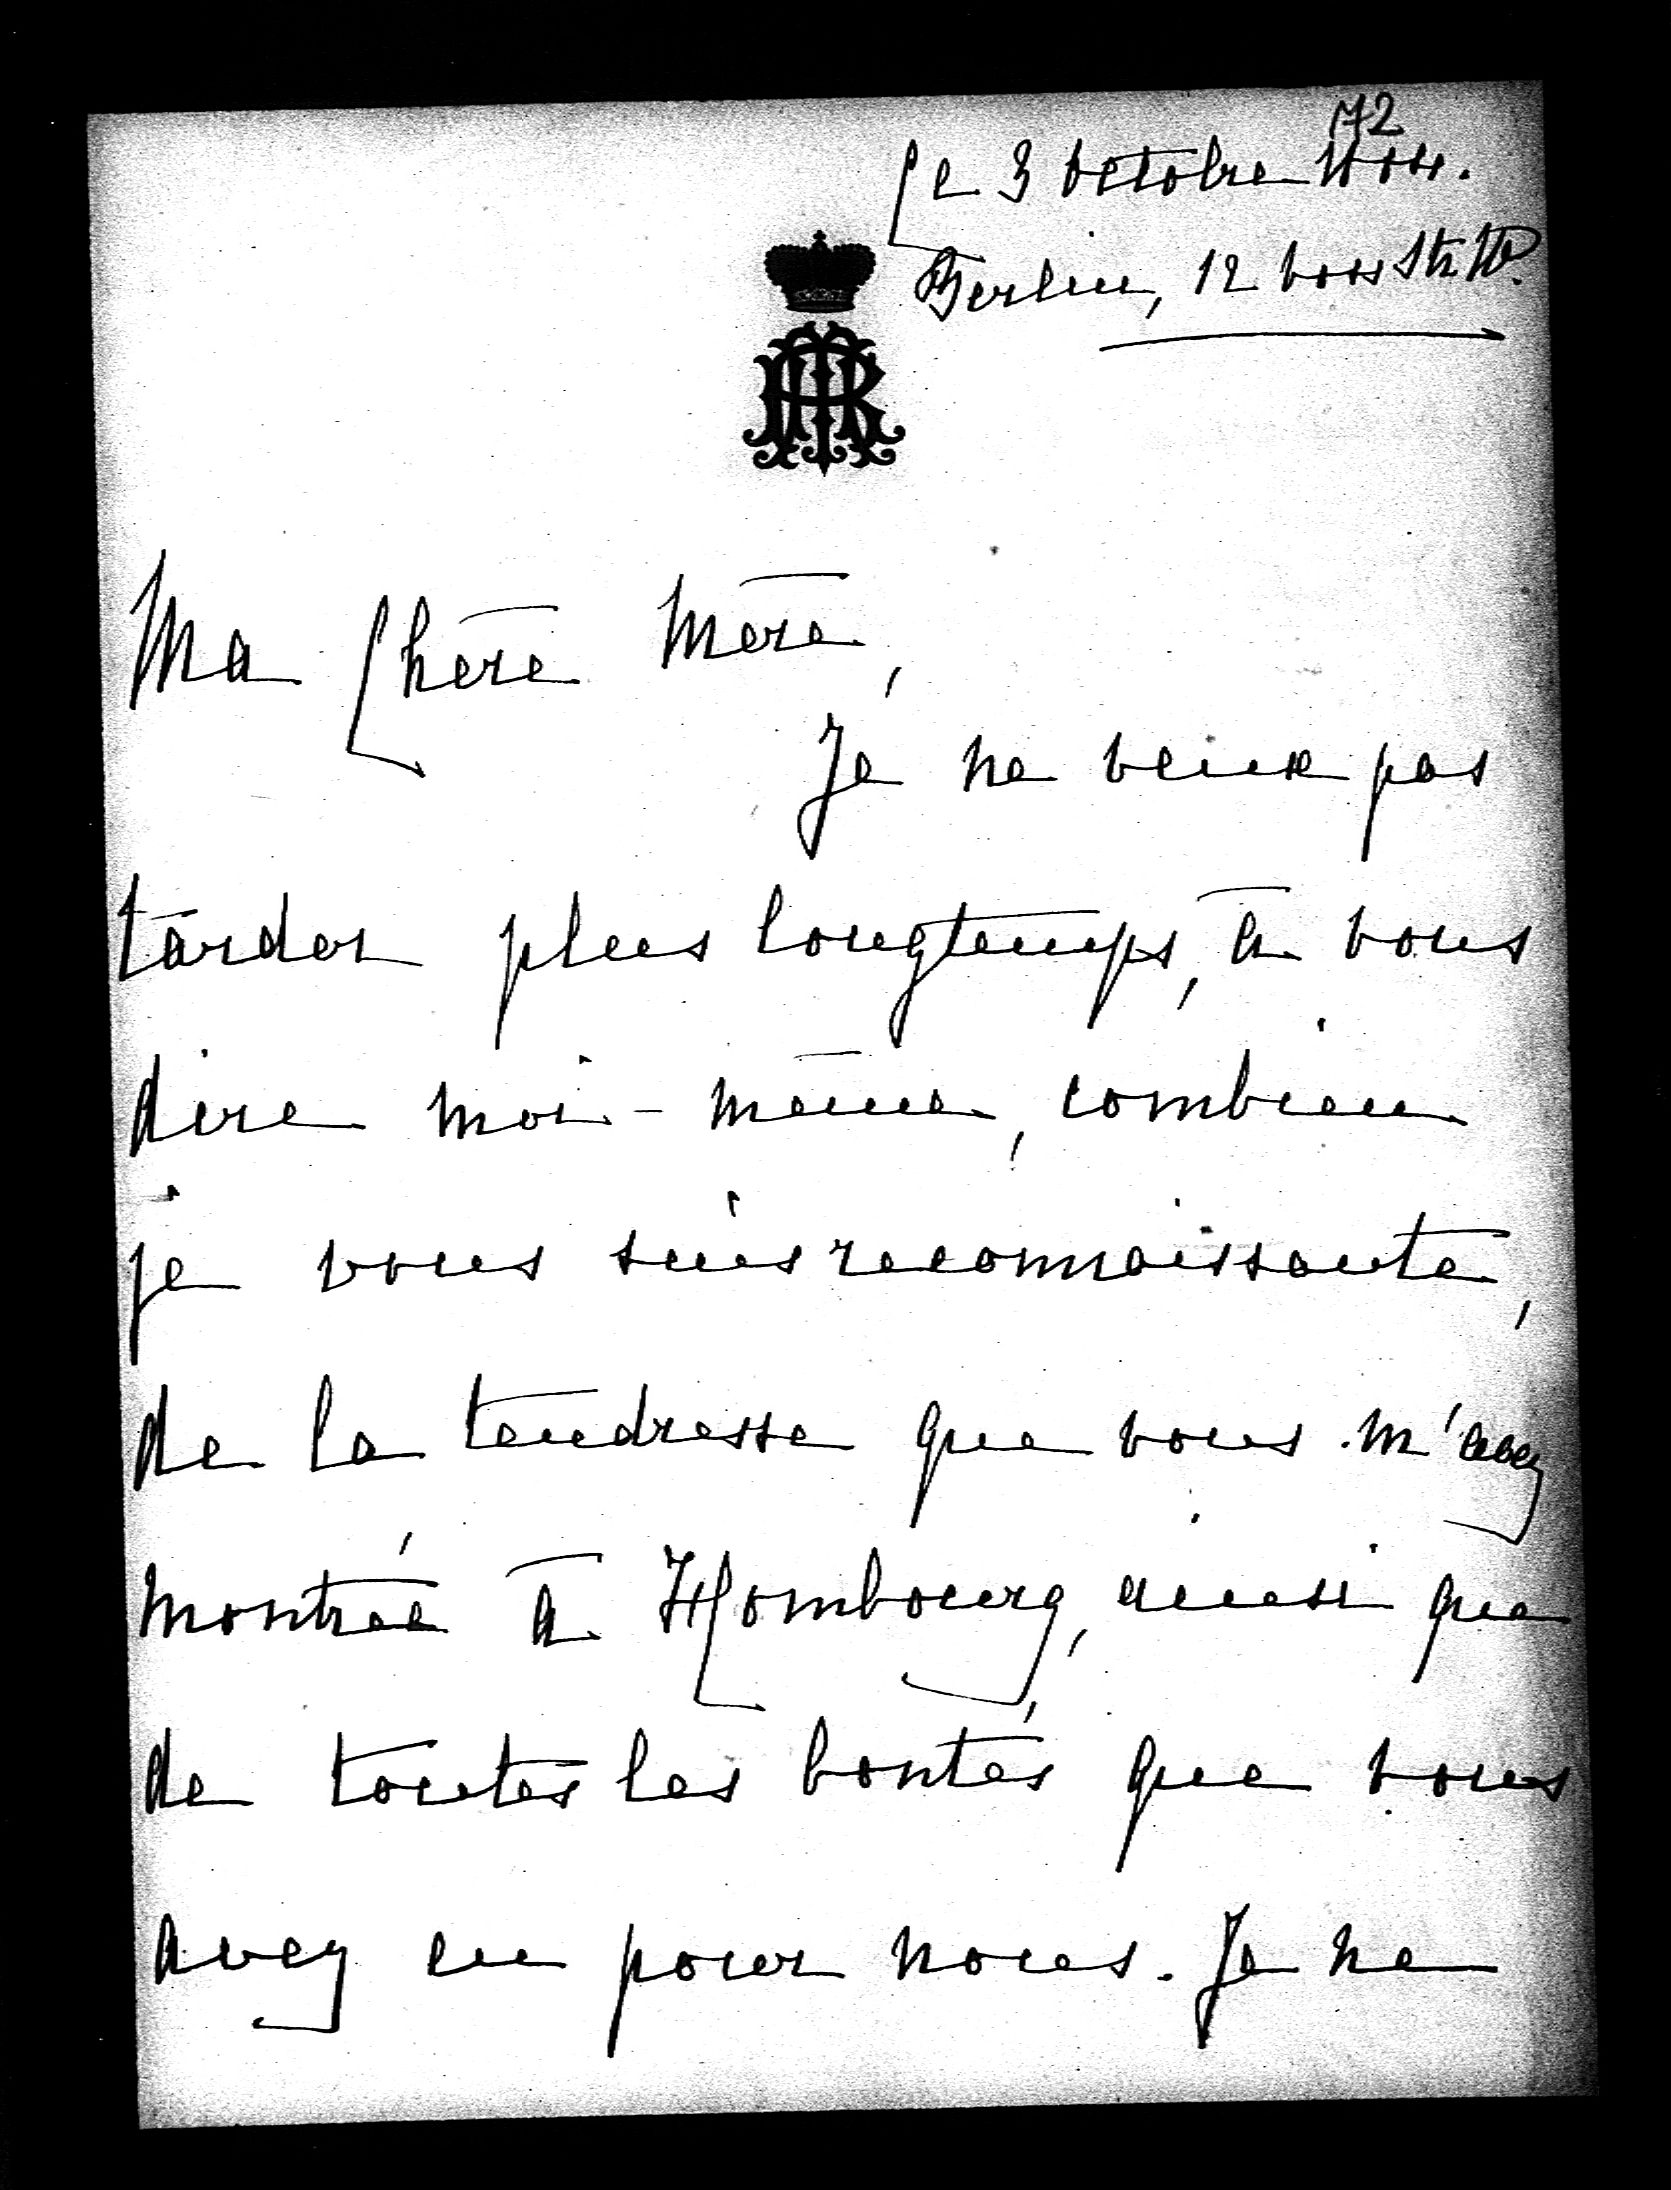 72
Ce 3 Octobre 1904.
Berlin, 12 Voss Str. W.
Ma Chère Mère,
Je ne veux pas
tarder plus longtemps, à vous
dire moi-même, combien
je vous suis reconnaissante,
de la tendresse que vous m'avez
montrée à Hombourg, aussi que
de toutes les bontés que vous
avez eu pour nous. Je ne